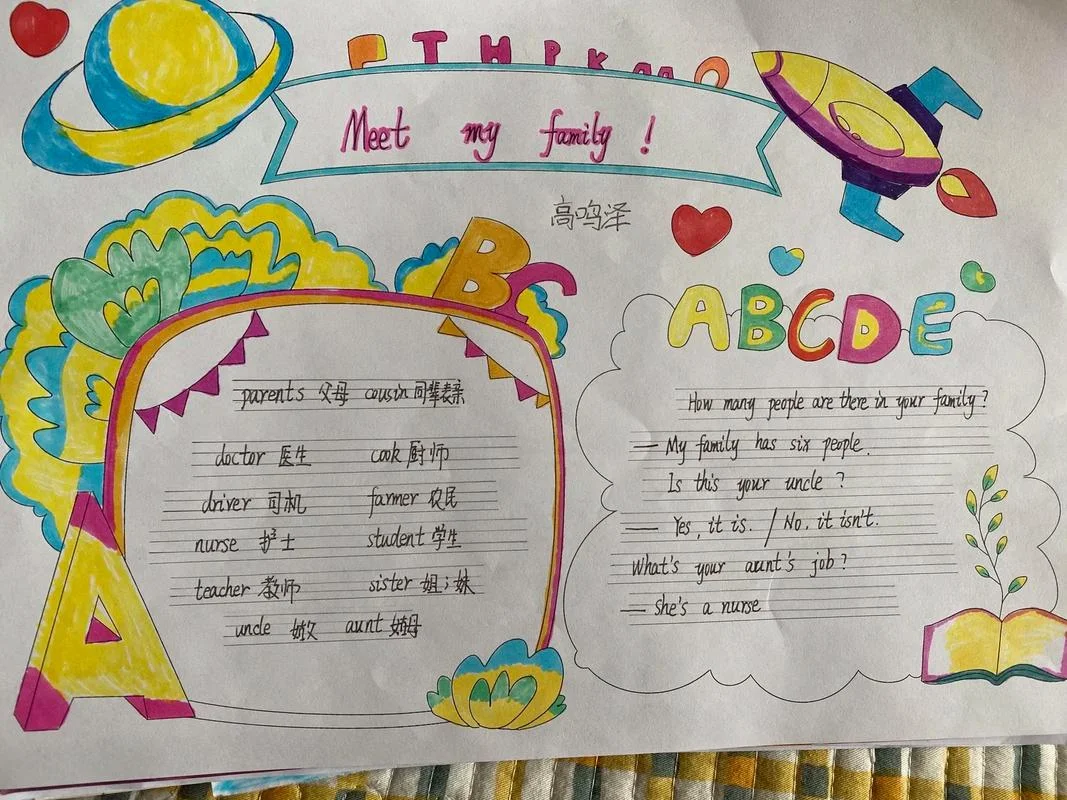 T H P K
Meet my family !
高鸣泽
B C
A B C D E
parents 父母 cousin 同辈表亲
doctor 医生 cook 厨师
driver 司机 farmer 农民
nurse 护士 student 学生
teacher 教师 sister 姐；妹
uncle aunt
A
How many people are there in your family?
— My family has six people.
Is this your uncle ?
— Yes, it is. / No, it isn't.
What's your aunt's job?
— She's a nurse